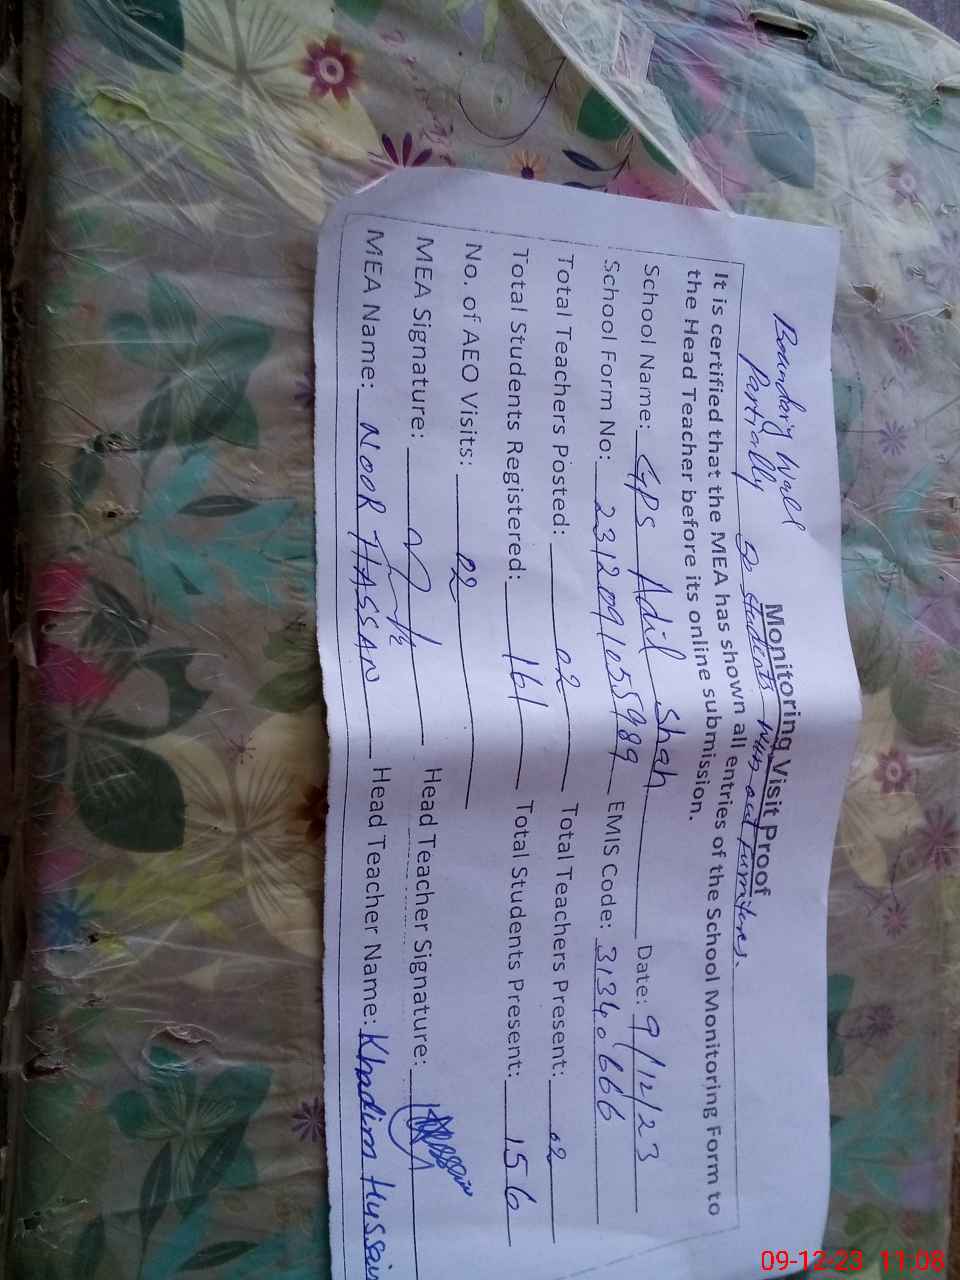 Boundary Wall
Partially
Monitoring Visit Proof
50 students with out furnitures.
It is certified that the MEA has shown all entries of the School Monitoring Form to
the Head Teacher before its online submission.
School Name: GPS Adil Shah Date: 9/12/23
School Form No: 2312091055989 EMIS Code: 31340666
Total Teachers Posted: 02 Total Teachers Present: 02
Total Students Registered: 161 Total Students Present: 156
No. of AEO Visits: 02
MEA Signature: Head Teacher Signature:
MEA Name: NOOR HASSAN Head Teacher Name: Khadim Hussain
09-12-23 11:08